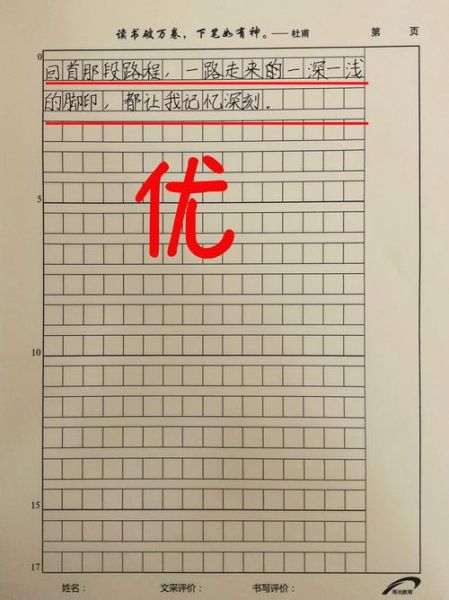 读书破万卷，下笔如有神。——杜甫 第 页
0
回首那段路程，一路走来的一深一浅
的脚印，都让我记忆深刻．
优
5
10
15
17
姓名： 文采评价： 书写评价：